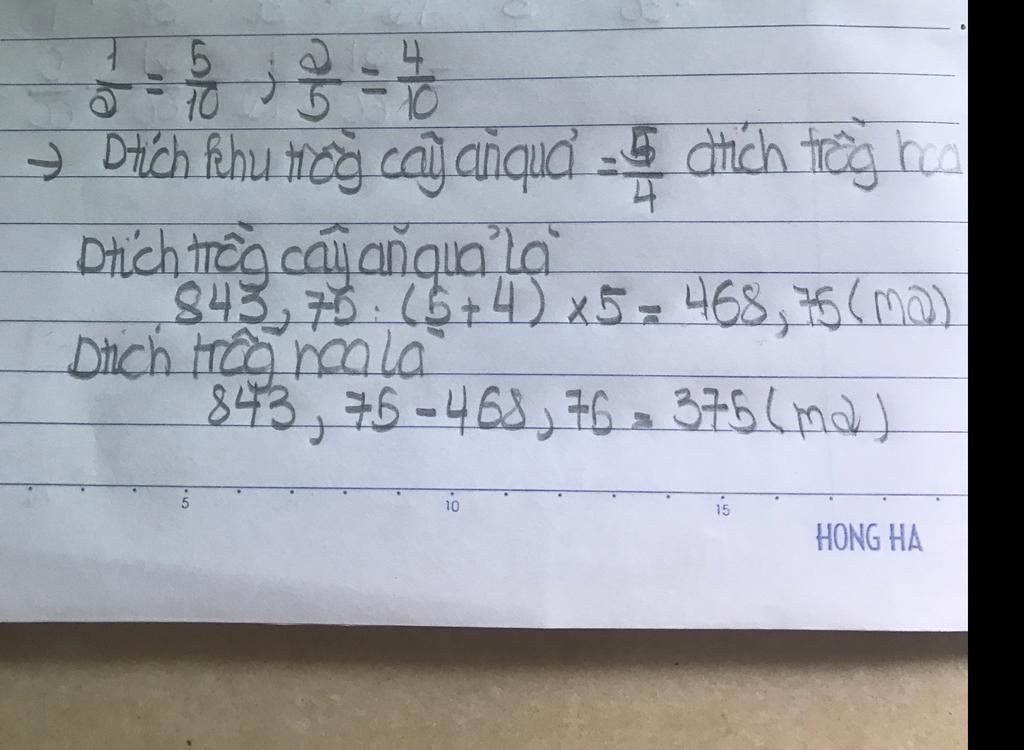 1/2 = 5/10 ; 2/5 = 4/10
→ Dtích khu trồg cây ăn quả = 5/4 dtích trồg hoa
Dtích trồg cây ăn quả là
843,75 : (5+4) x5 = 468,75 (m2)
Dtích trồg hoa là
843,75 - 468,75 = 375 (m2)
5 10 15
HONG HA